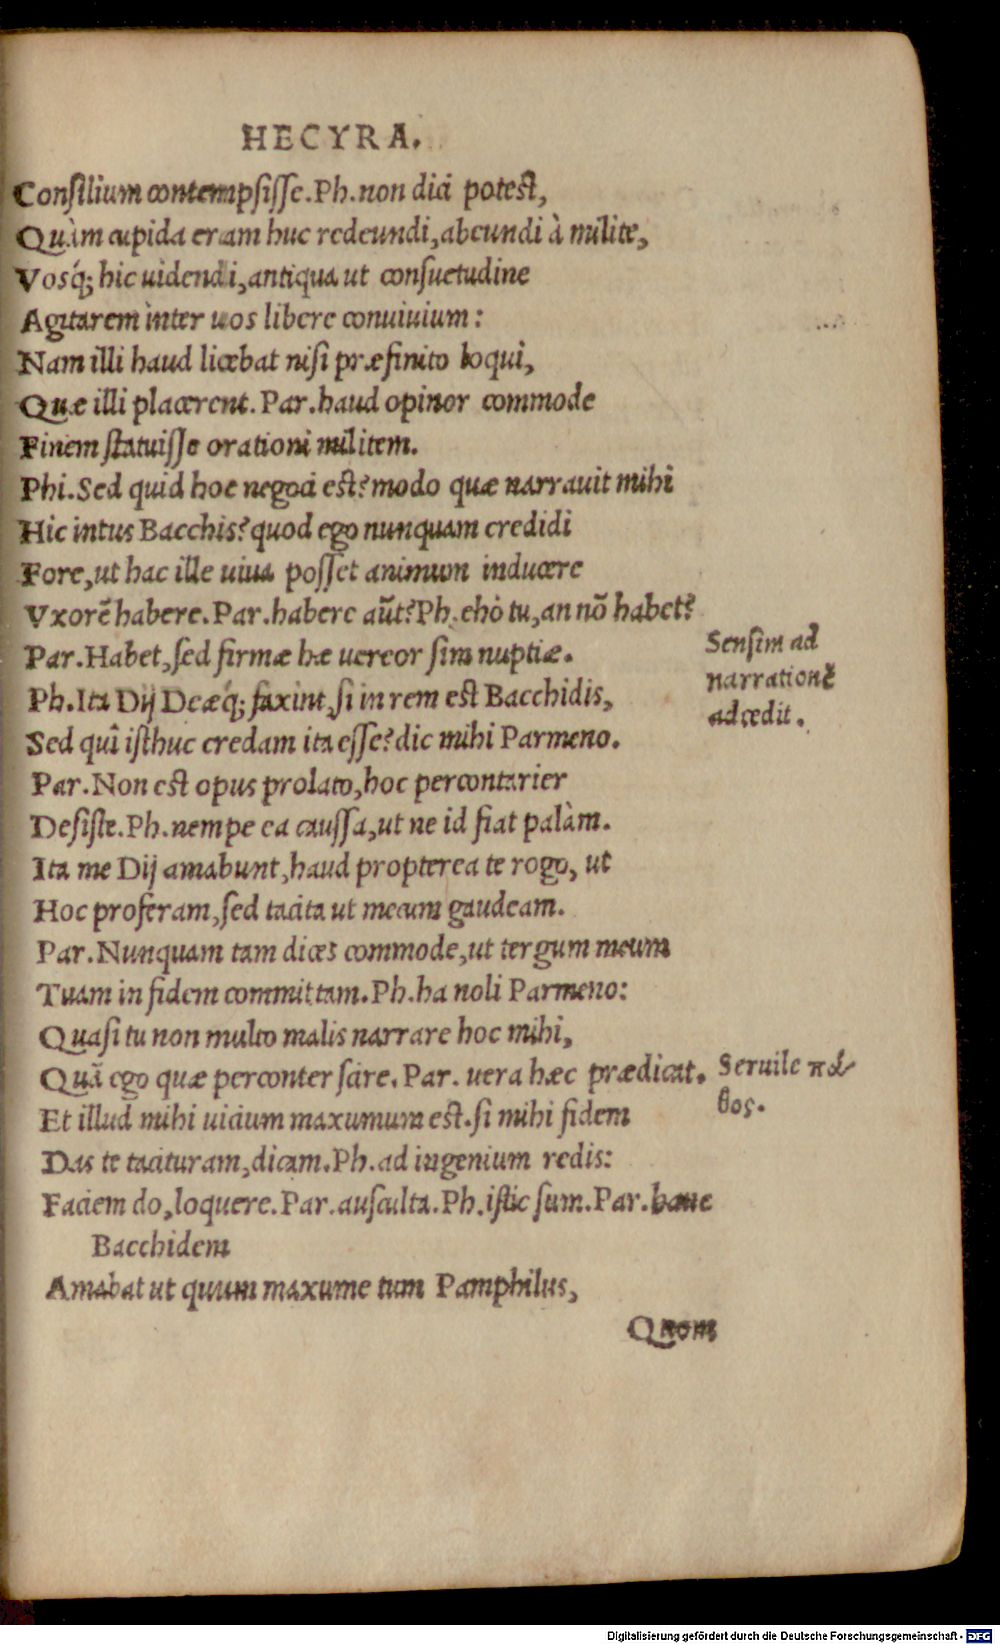 HECYRA.
Consilium contempsisse. Ph. non dici potest,
Quàm cupida eram huc redeundi, abeundi à milite,
Vosq́; hic uidendi, antiqua ut consuetudine
Agitarem inter uos libere conuiuium:
Nam illi haud licebat nisi præfinito loqui,
Quæ illi placerent. Par. haud opinor commode
Finem statuisse orationi militem.
Phi. Sed quid hoc negoci est? modo quæ narrauit mihi
Hic intus Bacchis? quod ego nunquam credidi
Fore, ut hac ille uiua posset animum inducere
Vxorē habere. Par. habere aūt? Ph. eho tu, an nō habet?
Par. Habet, sed firmæ hæ uereor sim nuptiæ.
Sensim ad
narrationē
adcedit.
Ph. Ita Dij Deæq́; faxint, si in rem est Bacchidis,
Sed quî isthuc credam ita esse? dic mihi Parmeno.
Par. Non est opus prolato, hoc percontarier
Desiste. Ph. nempe ea caussa, ut ne id fiat palàm.
Ita me Dij amabunt, haud propterea te rogo, ut
Hoc proferam, sed tacita ut mecum gaudeam.
Par. Nunquam tam dices commode, ut tergum meum
Tuam in fidem committam. Ph. ha noli Parmeno:
Quasi tu non multo malis narrare hoc mihi,
Quā ego quæ perconter scire. Par. uera hæc prædicat.
Seruile πά-
θος.
Et illud mihi uicium maxumum est. si mihi fidem
Das te tacituram, dicam. Ph. ad ingenium redis:
Faciem do, loquere. Par. ausculta. Ph. istic sum. Par. hanc
Bacchidem
Amabat ut quum maxume tum Pamphilus,
Quom
Digitalisierung gefördert durch die Deutsche Forschungsgemeinschaft - DFG